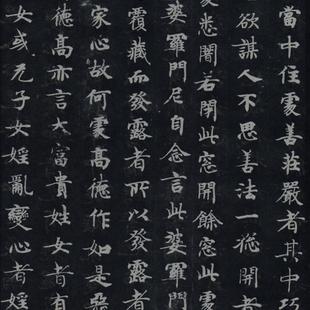 當中住處善莊嚴者其中巧
欲謀人不思善法一窓開者
悉闇若閉此窓開餘窓此處
婆羅門尼自念言此婆羅門
覆藏而發露者所以發露者
家心故何處高德作如是惡
德高亦言大富貴姓女者有
女或兄子女婬亂變心者婬